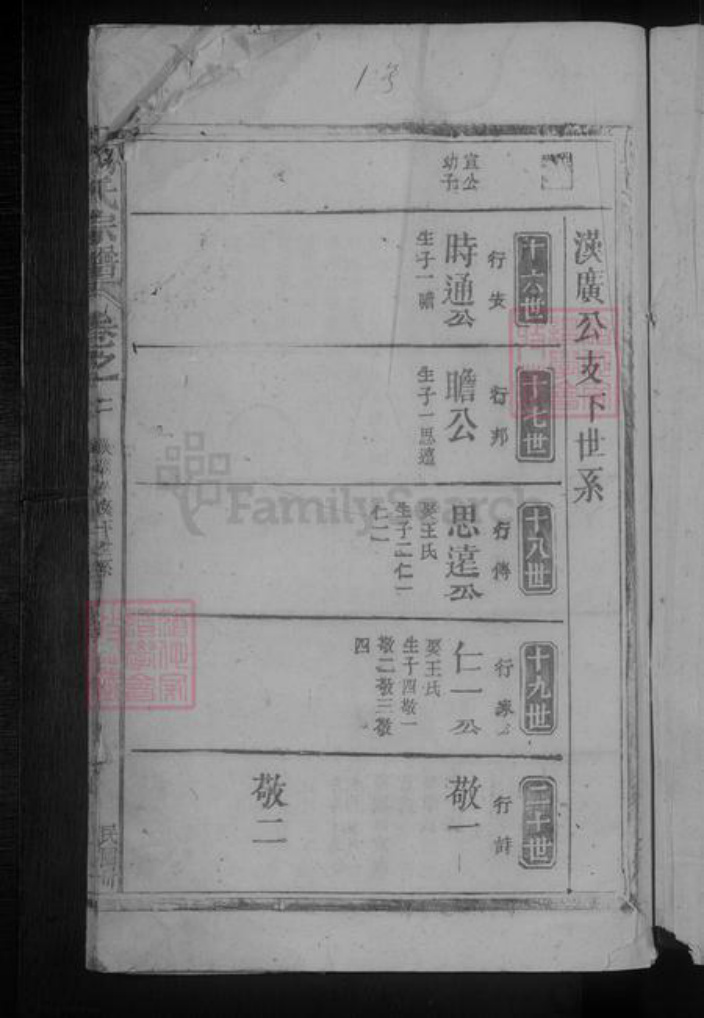 1号
漢廣公支下世系
宣公
幼子
十六世
行安
時通公
生子一瞻
十七世
行邦
瞻公
生子一思遠
十八世
行傳
思遠公
娶王氏
生子二仁一
仁二
十九世
行家
仁一公
娶王氏
生子四敬一
敬二敬三敬
四
二十世
行詩
敬一
敬二
氏宗譜
卷之
民國
FamilySearch